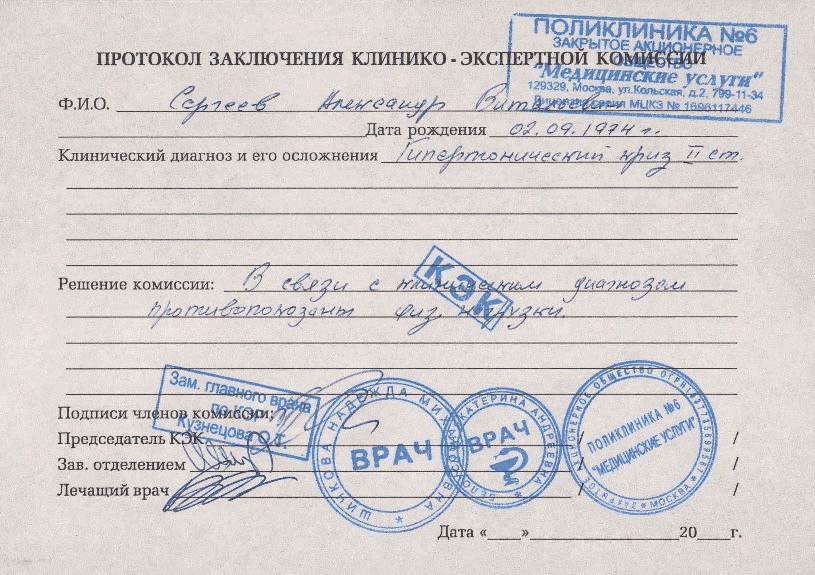 ПОЛИКЛИНИКА №6
ЗАКРЫТОЕ АКЦИОНЕРНОЕ
ОБЩЕСТВО
"Медицинские услуги"
129329, Москва, ул.Кольская, д.2, 799-11-34
Лицензия серия МЦКЗ № 1696117446
ПРОТОКОЛ ЗАКЛЮЧЕНИЯ КЛИНИКО - ЭКСПЕРТНОЙ КОМИССИИ
Ф.И.О. Сергеев Александр Витальевич
Дата рождения 02.09.1974 г.
Клинический диагноз и его осложнения Гипертонический криз II ст.
КЭК
Решение комиссии: В связи с клиническим диагнозом
противопоказаны физ. нагрузки.
Зам. главного врача
по КЭР
Кузнецова О.Т.
Подписи членов комиссии:
Председатель КЭК / /
Зав. отделением / /
Лечащий врач / /
ШИНКОВА НАДЕЖДА
ВРАЧ
ЕКАТЕРИНА АНДРЕЕВНА
ВРАЧ
АКЦИОНЕРНОЕ ОБЩЕСТВО ОГРН
ПОЛИКЛИНИКА №6
"МЕДИЦИНСКИЕ УСЛУГИ"
* МОСКВА *
Дата «____»____________________20____г.